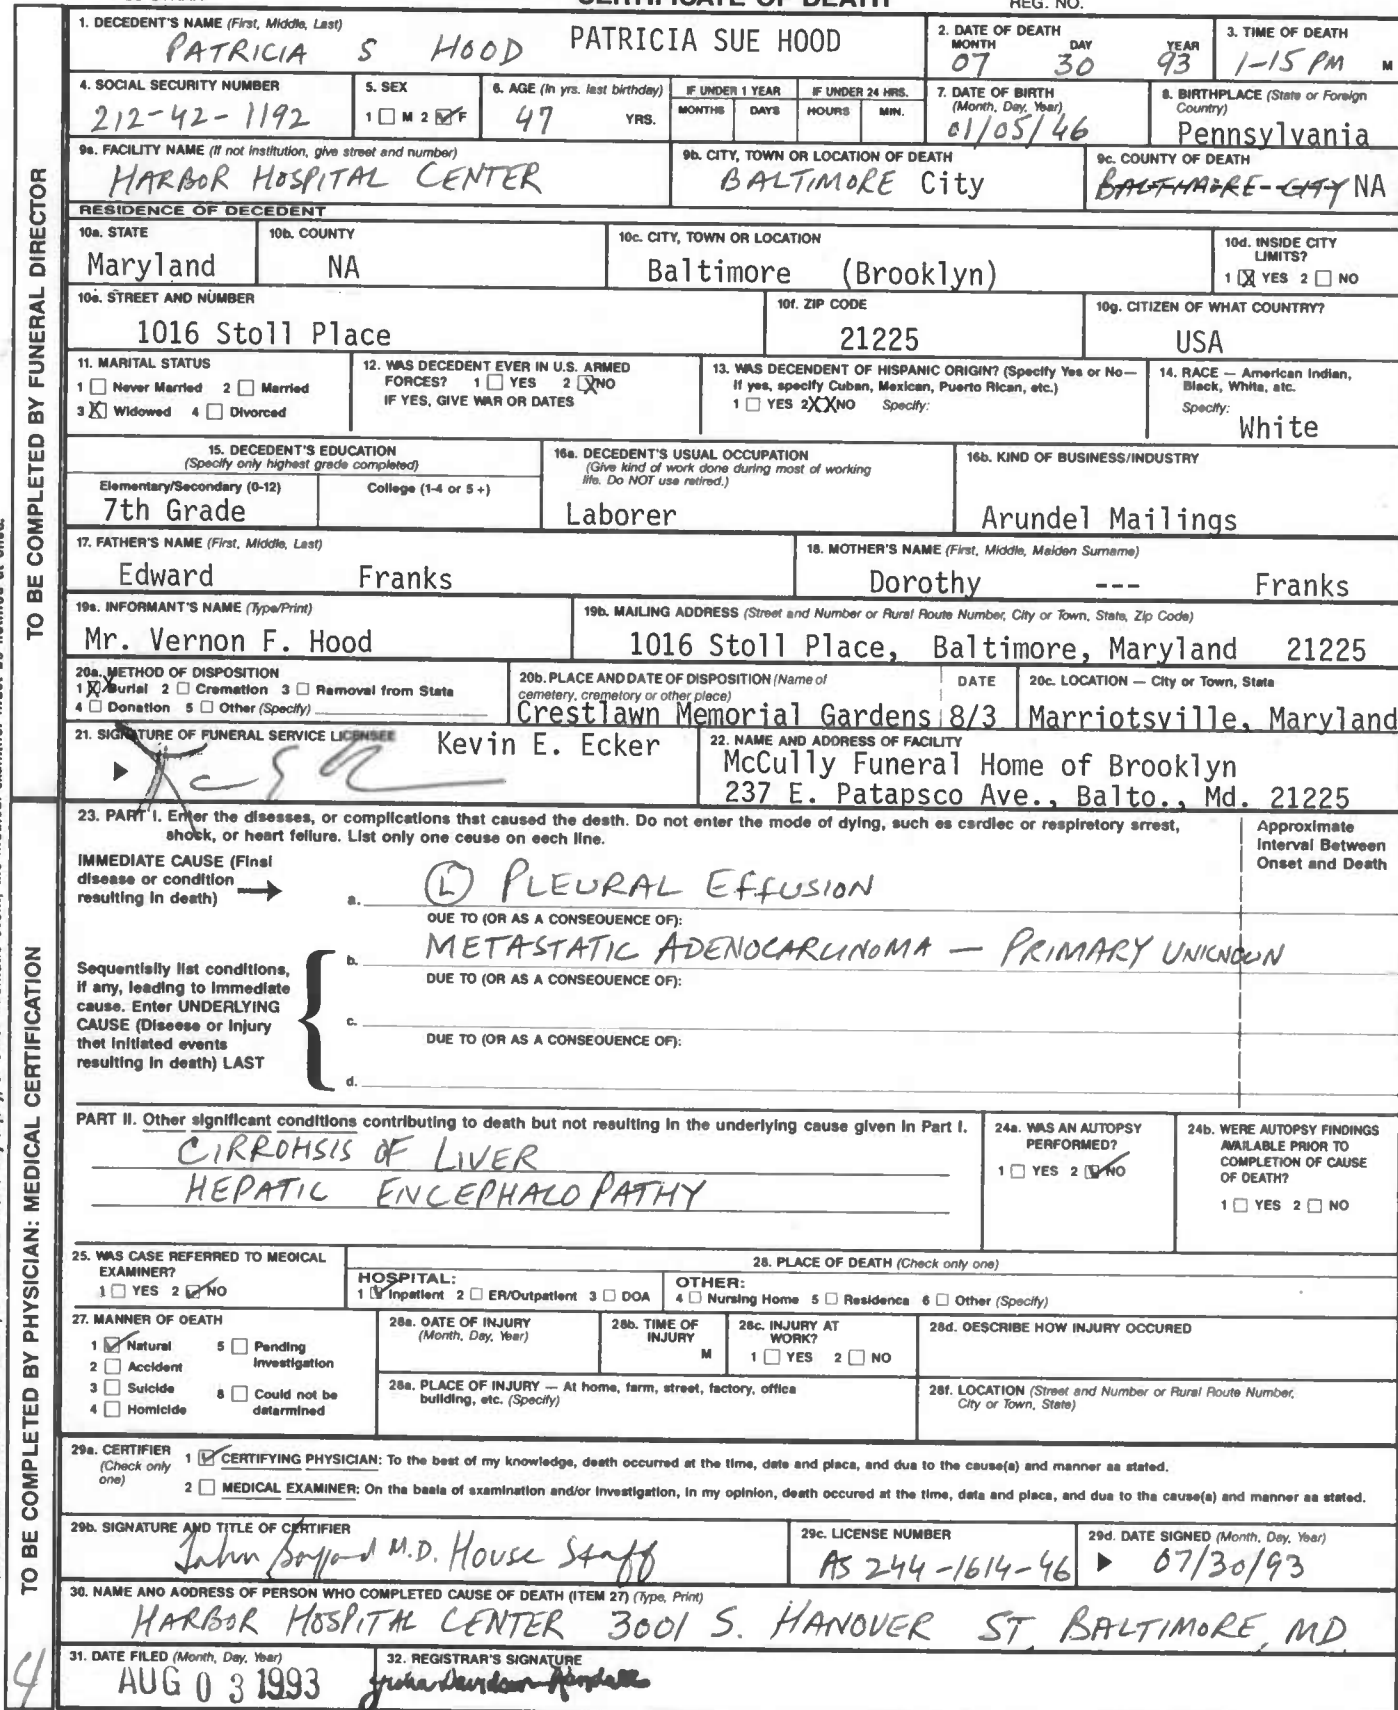 CERTIFICATE OF DEATH REG. NO.
TO BE COMPLETED BY FUNERAL DIRECTOR
1. DECEDENT'S NAME (First, Middle, Last)
PATRICIA S HOOD PATRICIA SUE HOOD
2. DATE OF DEATH
MONTH DAY YEAR
07 30 93
3. TIME OF DEATH
1-15 PM M
4. SOCIAL SECURITY NUMBER
212-42-1192
5. SEX
1 ☐ M 2 ☑ F
6. AGE (In yrs. last birthday)
47 YRS.
IF UNDER 1 YEAR
MONTHS DAYS
IF UNDER 24 HRS.
HOURS MIN.
7. DATE OF BIRTH
(Month, Day, Year)
01/05/46
8. BIRTHPLACE (State or Foreign
Country)
Pennsylvania
9a. FACILITY NAME (If not institution, give street and number)
HARBOR HOSPITAL CENTER
9b. CITY, TOWN OR LOCATION OF DEATH
BALTIMORE City
9c. COUNTY OF DEATH
BALTIMORE CITY NA
RESIDENCE OF DECEDENT
10a. STATE
Maryland
10b. COUNTY
NA
10c. CITY, TOWN OR LOCATION
Baltimore (Brooklyn)
10d. INSIDE CITY
LIMITS?
1 ☒ YES 2 ☐ NO
10e. STREET AND NUMBER
1016 Stoll Place
10f. ZIP CODE
21225
10g. CITIZEN OF WHAT COUNTRY?
USA
11. MARITAL STATUS
1 ☐ Never Married 2 ☐ Married
3 ☒ Widowed 4 ☐ Divorced
12. WAS DECEDENT EVER IN U.S. ARMED
FORCES? 1 ☐ YES 2 ☒ NO
IF YES, GIVE WAR OR DATES
13. WAS DECENDENT OF HISPANIC ORIGIN? (Specify Yes or No—
If yes, specify Cuban, Mexican, Puerto Rican, etc.)
1 ☐ YES 2XXNO Specify:
14. RACE — American Indian,
Black, White, etc.
Specify:
White
15. DECEDENT'S EDUCATION
(Specify only highest grade completed)
Elementary/Secondary (0-12) College (1-4 or 5+)
7th Grade
16a. DECEDENT'S USUAL OCCUPATION
(Give kind of work done during most of working
life. Do NOT use retired.)
Laborer
16b. KIND OF BUSINESS/INDUSTRY
Arundel Mailings
17. FATHER'S NAME (First, Middle, Last)
Edward Franks
18. MOTHER'S NAME (First, Middle, Maiden Surname)
Dorothy --- Franks
19a. INFORMANT'S NAME (Type/Print)
Mr. Vernon F. Hood
19b. MAILING ADDRESS (Street and Number or Rural Route Number, City or Town, State, Zip Code)
1016 Stoll Place, Baltimore, Maryland 21225
20a. METHOD OF DISPOSITION
1 ☒ Burial 2 ☐ Cremation 3 ☐ Removal from State
4 ☐ Donation 5 ☐ Other (Specify)
20b. PLACE AND DATE OF DISPOSITION (Name of
cemetery, crematory or other place) DATE
Crestlawn Memorial Gardens 8/3
20c. LOCATION — City or Town, State
Marriotsville, Maryland
21. SIGNATURE OF FUNERAL SERVICE LICENSEE
Kevin E. Ecker
22. NAME AND ADDRESS OF FACILITY
McCully Funeral Home of Brooklyn
237 E. Patapsco Ave., Balto., Md. 21225
TO BE COMPLETED BY PHYSICIAN: MEDICAL CERTIFICATION
23. PART I. Enter the diseases, or complications that caused the death. Do not enter the mode of dying, such as cardiac or respiratory arrest,
shock, or heart failure. List only one cause on each line.
Approximate
Interval Between
Onset and Death
IMMEDIATE CAUSE (Final
disease or condition
resulting in death)
a. Ⓛ PLEURAL EFFUSION
DUE TO (OR AS A CONSEQUENCE OF):
b. METASTATIC ADENOCARCINOMA — PRIMARY UNKNOWN
DUE TO (OR AS A CONSEQUENCE OF):
Sequentially list conditions,
if any, leading to immediate
cause. Enter UNDERLYING
CAUSE (Disease or Injury
that initiated events
resulting in death) LAST
c.
DUE TO (OR AS A CONSEQUENCE OF):
d.
PART II. Other significant conditions contributing to death but not resulting in the underlying cause given in Part I.
CIRROHSIS OF LIVER
HEPATIC ENCEPHALOPATHY
24a. WAS AN AUTOPSY
PERFORMED?
1 ☐ YES 2 ☑ NO
24b. WERE AUTOPSY FINDINGS
AVAILABLE PRIOR TO
COMPLETION OF CAUSE
OF DEATH?
1 ☐ YES 2 ☐ NO
25. WAS CASE REFERRED TO MEDICAL
EXAMINER?
1 ☐ YES 2 ☑ NO
26. PLACE OF DEATH (Check only one)
HOSPITAL:
1 ☑ Inpatient 2 ☐ ER/Outpatient 3 ☐ DOA
OTHER:
4 ☐ Nursing Home 5 ☐ Residence 6 ☐ Other (Specify)
27. MANNER OF DEATH
1 ☑ Natural 5 ☐ Pending
Investigation
2 ☐ Accident
3 ☐ Suicide 8 ☐ Could not be
determined
4 ☐ Homicide
28a. DATE OF INJURY
(Month, Day, Year)
28b. TIME OF
INJURY
M
28c. INJURY AT
WORK?
1 ☐ YES 2 ☐ NO
28d. DESCRIBE HOW INJURY OCCURED
28e. PLACE OF INJURY — At home, farm, street, factory, office
building, etc. (Specify)
28f. LOCATION (Street and Number or Rural Route Number,
City or Town, State)
29a. CERTIFIER
(Check only
one)
1 ☑ CERTIFYING PHYSICIAN: To the best of my knowledge, death occurred at the time, date and place, and due to the cause(s) and manner as stated.
2 ☐ MEDICAL EXAMINER: On the basis of examination and/or investigation, in my opinion, death occured at the time, date and place, and due to the cause(s) and manner as stated.
29b. SIGNATURE AND TITLE OF CERTIFIER
M.D. House Staff
29c. LICENSE NUMBER
AS 244-1614-46
29d. DATE SIGNED (Month, Day, Year)
07/30/93
30. NAME AND ADDRESS OF PERSON WHO COMPLETED CAUSE OF DEATH (ITEM 27) (Type, Print)
HARBOR HOSPITAL CENTER 3001 S. HANOVER ST, BALTIMORE, MD
31. DATE FILED (Month, Day, Year)
AUG 03 1993
32. REGISTRAR'S SIGNATURE
4